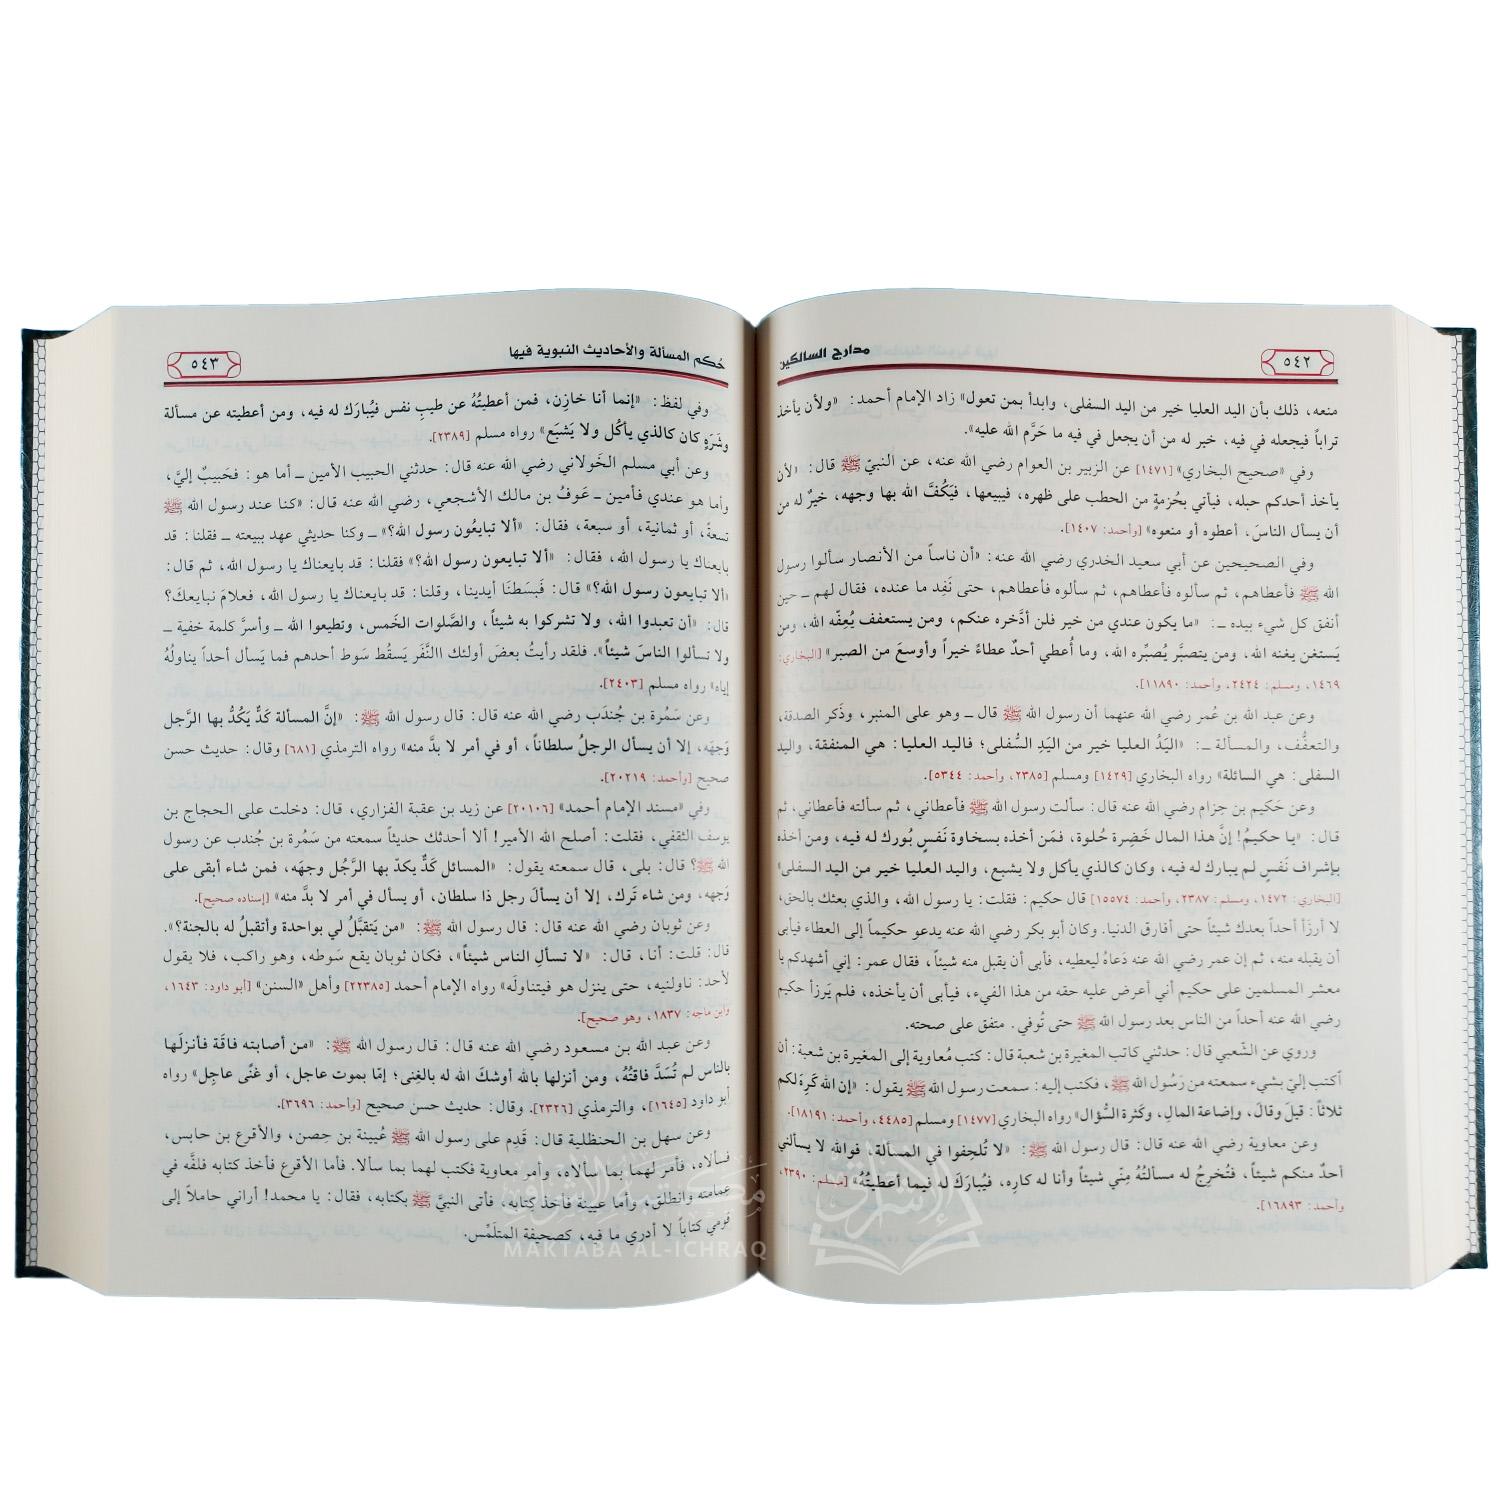 مدارج السالكين
٥٤٢
منعه، ذلك بأن اليد العليا خير من اليد السفلى، وابدأ بمن تعول» زاد الإمام أحمد: «ولأن يأخذ
تراباً فيجعله في فيه، خير له من أن يجعل في فيه ما حَرَّم الله عليه».
وفي «صحيح البخاري» [١٤٧١] عن الزبير بن العوام رضي الله عنه، عن النبيّ ﷺ قال: «لأن
يأخذ أحدكم حبله، فيأتي بحُزمةٍ من الحطب على ظهره، فيبيعها، فيَكُفَّ الله بها وجهه، خيرٌ له من
أن يسأل الناسَ، أعطوه أو منعوه» [وأحمد: ١٤٠٧].
وفي الصحيحين عن أبي سعيد الخدري رضي الله عنه: «أن ناساً من الأنصار سألوا رسول
الله ﷺ فأعطاهم، ثم سألوه فأعطاهم، ثم سألوه فأعطاهم، حتى نَفِد ما عنده، فقال لهم ـ حين
أنفق كل شيء بيده ـ: «ما يكون عندي من خير فلن أدَّخره عنكم، ومن يستعفف يُعِفّه الله، ومن
يَستغن يغنه الله، ومن يتصبَّر يُصبِّره الله، وما أُعطي أحدٌ عطاءً خيراً وأوسعَ من الصبر» [البخاري:
١٤٦٩، ومسلم: ٢٤٢٤، وأحمد: ١١٨٩٠].
وعن عبد الله بن عُمر رضي الله عنهما أن رسول الله ﷺ قال ـ وهو على المنبر، وذَكر الصدقة،
والتعفُّف، والمسألة ـ: «اليَدُ العليا خير من اليَدِ السُّفلى؛ فاليد العليا: هي المنفقة، واليد
السفلى: هي السائلة» رواه البخاري [١٤٢٩] ومسلم [٢٣٨٥، وأحمد: ٥٣٤٤].
وعن حَكيم بن حِزام رضي الله عنه قال: سألت رسول الله ﷺ فأعطاني، ثم سألته فأعطاني، ثم
قال: «يا حكيمُ! إنَّ هذا المال خَضِرة حُلوة، فمَن أخذه بسخاوة نَفسٍ بُورك له فيه، ومن أخذه
بإشراف نَفسٍ لم يبارك له فيه، وكان كالذي يأكل ولا يشبع، واليد العليا خير من اليد السفلى»
[البخاري: ١٤٧٢، ومسلم: ٢٣٨٧، وأحمد: ١٥٥٧٤] قال حكيم: فقلت: يا رسول الله، والذي بعثك بالحق،
لا أرزأ أحداً بعدك شيئاً حتى أفارق الدنيا. وكان أبو بكر رضي الله عنه يدعو حكيماً إلى العطاء فيأبى
أن يقبله منه، ثم إن عمر رضي الله عنه دَعاهُ ليعطيه، فأبى أن يقبل منه شيئاً، فقال عمر: إني أشهدكم يا
معشر المسلمين على حكيم أني أعرض عليه حقه من هذا الفيء، فيأبى أن يأخذه، فلم يَرزأ حكيم
رضي الله عنه أحداً من الناس بعد رسول الله ﷺ حتى تُوفي. متفق على صحته.
وروي عن الشَّعبي قال: حدثني كاتب المغيرة بن شعبة قال: كتب مُعاوية إلى المغيرة بن شعبة: أن
اكتب إليّ بشيء سمعته من رَسُول الله ﷺ، فكتب إليه: سمعت رسول الله ﷺ يقول: «إن الله كَرِهَ لكم
ثلاثاً: قيلَ وقال، وإضاعة المالِ، وكَثرة السُّؤال» رواه البخاري [١٤٧٧] ومسلم [٤٤٨٥، وأحمد: ١٨١٩١].
وعن معاوية رضي الله عنه قال: قال رسول الله ﷺ: «لا تُلحِفوا في المسألة، فوالله لا يسألني
أحدٌ منكم شيئاً، فتُخرِجُ له مسألتُهُ مِنّي شيئاً وأنا له كارِه، فيُبارَكَ له فيما أعطيتُهُ» [مسلم: ٢٣٩٠،
وأحمد: ١٦٨٩٣].
حُكم المسألة والأحاديث النبوية فيها
٥٤٣
وفي لفظ: «إنما أنا خازِن، فمن أعطيتُهُ عن طيبِ نفس فيُبارَك له فيه، ومن أعطيته عن مسألة
وشَرَهٍ كان كالذي يأكُل ولا يَشبَع» رواه مسلم [٢٣٨٩].
وعن أبي مسلم الخَولاني رضي الله عنه قال: حدثني الحبيب الأمين ـ أما هو: فحَبيبٌ إليَّ،
وأما هو عندي فأمين ـ عَوفُ بن مالك الأشجعي، رضي الله عنه قال: «كنا عند رسول الله ﷺ
تسعةً، أو ثمانية، أو سبعة، فقال: «ألا تبايعُون رسول الله؟» ـ وكنا حديثي عهد ببيعته ـ فقلنا: قد
بايعناك يا رسول الله، فقال: «ألا تبايعون رسول الله؟» فقلنا: قد بايعناك يا رسول الله، ثم قال:
«ألا تبايعون رسول الله؟» قال: فَبَسطنَا أيدينا، وقلنا: قد بايعناك يا رسول الله، فعلامَ نبايعكَ؟
قال: «أن تعبدوا الله، ولا تشركوا به شيئاً، والصَّلوات الخَمس، وتطيعوا الله ـ وأسرَّ كلمة خفية ـ
ولا تسألوا الناسَ شيئاً». فلقد رأيتُ بعضَ أولئك االنَّفَر يَسقُط سَوط أحدهم فما يَسأل أحداً يناولُهُ
إياه» رواه مسلم [٢٤٠٣].
وعن سَمُرة بن جُندَب رضي الله عنه قال: قال رسول الله ﷺ: «إنَّ المسألة كَدٌّ يَكُدُّ بها الرَّجل
وَجهَه، إلا أن يسأل الرجلُ سلطاناً، أو في أمر لا بدَّ منه» رواه الترمذي [٦٨١] وقال: حديث حسن
صحيح [وأحمد: ٢٠٢١٩].
وفي «مسند الإمام أحمد» [٢٠١٠٦] عن زيد بن عقبة الفزاري، قال: دخلت على الحجاج بن
يوسف الثقفي، فقلت: أصلح الله الأمير! ألا أحدثك حديثاً سمعته من سَمُرة بن جُندب عن رسول
الله ﷺ؟ قال: بلى، قال سمعته يقول: «المسائل كَدٌّ يكدّ بها الرَّجُل وجهَه، فمن شاء أبقى على
وَجهه، ومن شاء تَرك، إلا أن يسألَ رجل ذا سلطان، أو يسأل في أمر لا بدَّ منه» [إسناده صحيح].
وعن ثوبان رضي الله عنه قال: قال رسول الله ﷺ: «من يَتقبَّلُ لي بواحدة وأتقبلُ له بالجنة؟».
قال: قلت: أنا، قال: «لا تسألِ الناس شيئاً»، فكان ثوبان يقع سَوطه، وهو راكب، فلا يقول
لأحد: ناولنيه، حتى ينزل هو فيتناولَه» رواه الإمام أحمد [٢٢٣٨٥] وأهل «السنن» [أبو داود: ١٦٤٣،
وابن ماجه: ١٨٣٧، وهو صحيح].
وعن عبد الله بن مسعود رضي الله عنه قال: قال رسول الله ﷺ: «من أصابته فاقَة فأنزلَها
بالناس لم تُسَدَّ فاقَتُهُ، ومن أنزلها بالله أوشكَ الله له بالغِنى؛ إمّا بموت عاجل، أو غنًى عاجِل» رواه
أبو داود [١٦٤٥]، والترمذي [٢٣٢٦]. وقال: حديث حسن صحيح [وأحمد: ٣٦٩٦].
وعن سهل بن الحنظلية قال: قَدِم على رسول الله ﷺ عُيينة بن حِصن، والأقرع بن حابس،
فسألاه، فأمر لهما بما سألاه، وأمر معاوية فكتب لهما بما سألا. فأما الأقرع فأخذ كتابه فلفَّه في
عمامته وانطلق، وأما عيينة فأخذ كِتابه، فأتى النبيَّ ﷺ بكتابه، فقال: يا محمد! أراني حاملاً إلى
قومي كتاباً لا أدري ما فيه، كصحيفة المتلَمِّس.
مكتبة الإشراق
MAKTABA AL-ICHRAQ
الإشراق